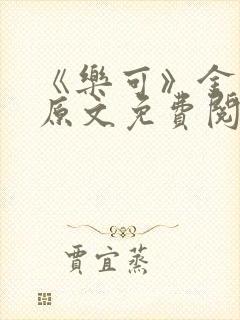 《樂可》全
原文免費閱
賈宜蒸